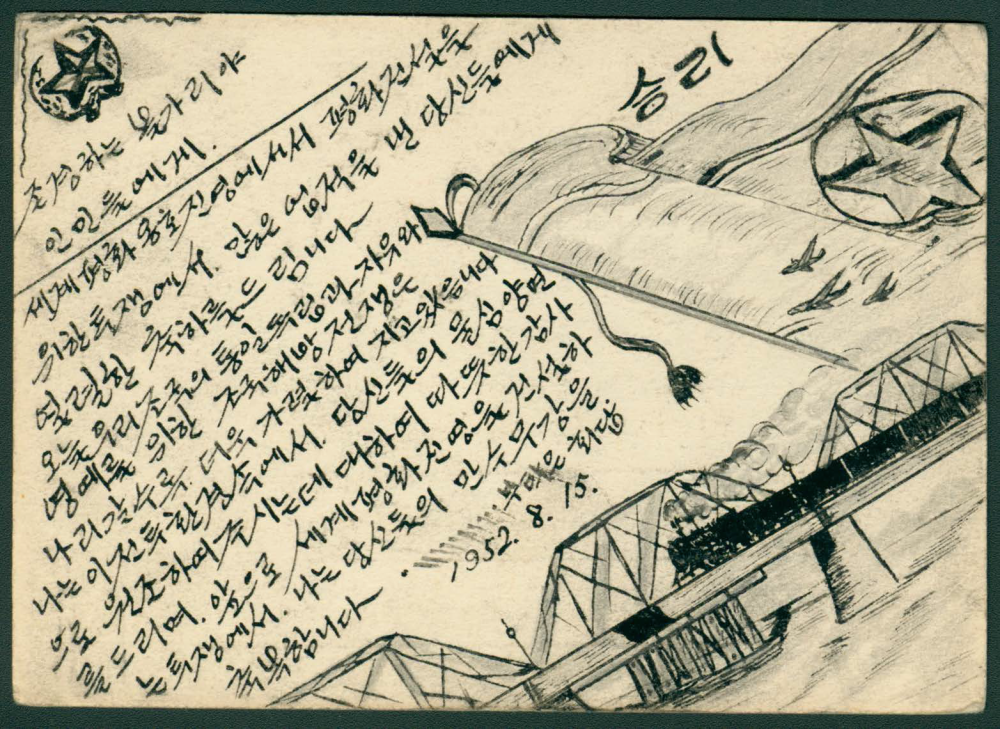 존경하는 웽가리야
인민들에게.
세계평화 옹호진영에서서 평화건설을
위한 투쟁에서. 많은 업적을 낸 당신들에게
열렬한 축하를 드립니다
오늘 우리조국의 통일 독립과 자유와
영예를 위한 조국해방전쟁은
나리갈수록 더욱 가렬하여 지고있습니다
나는 이 전투환경속에서. 당신들의 물심 양면
으로 원조하여주시는데 대하여 따뜻한 감사
를 드리며. 앞으로 세계평화 진영을 건설하
는 투쟁에서. 나는 당신들의 만수무강을
축복합니다
1952. 8. 15.
승리